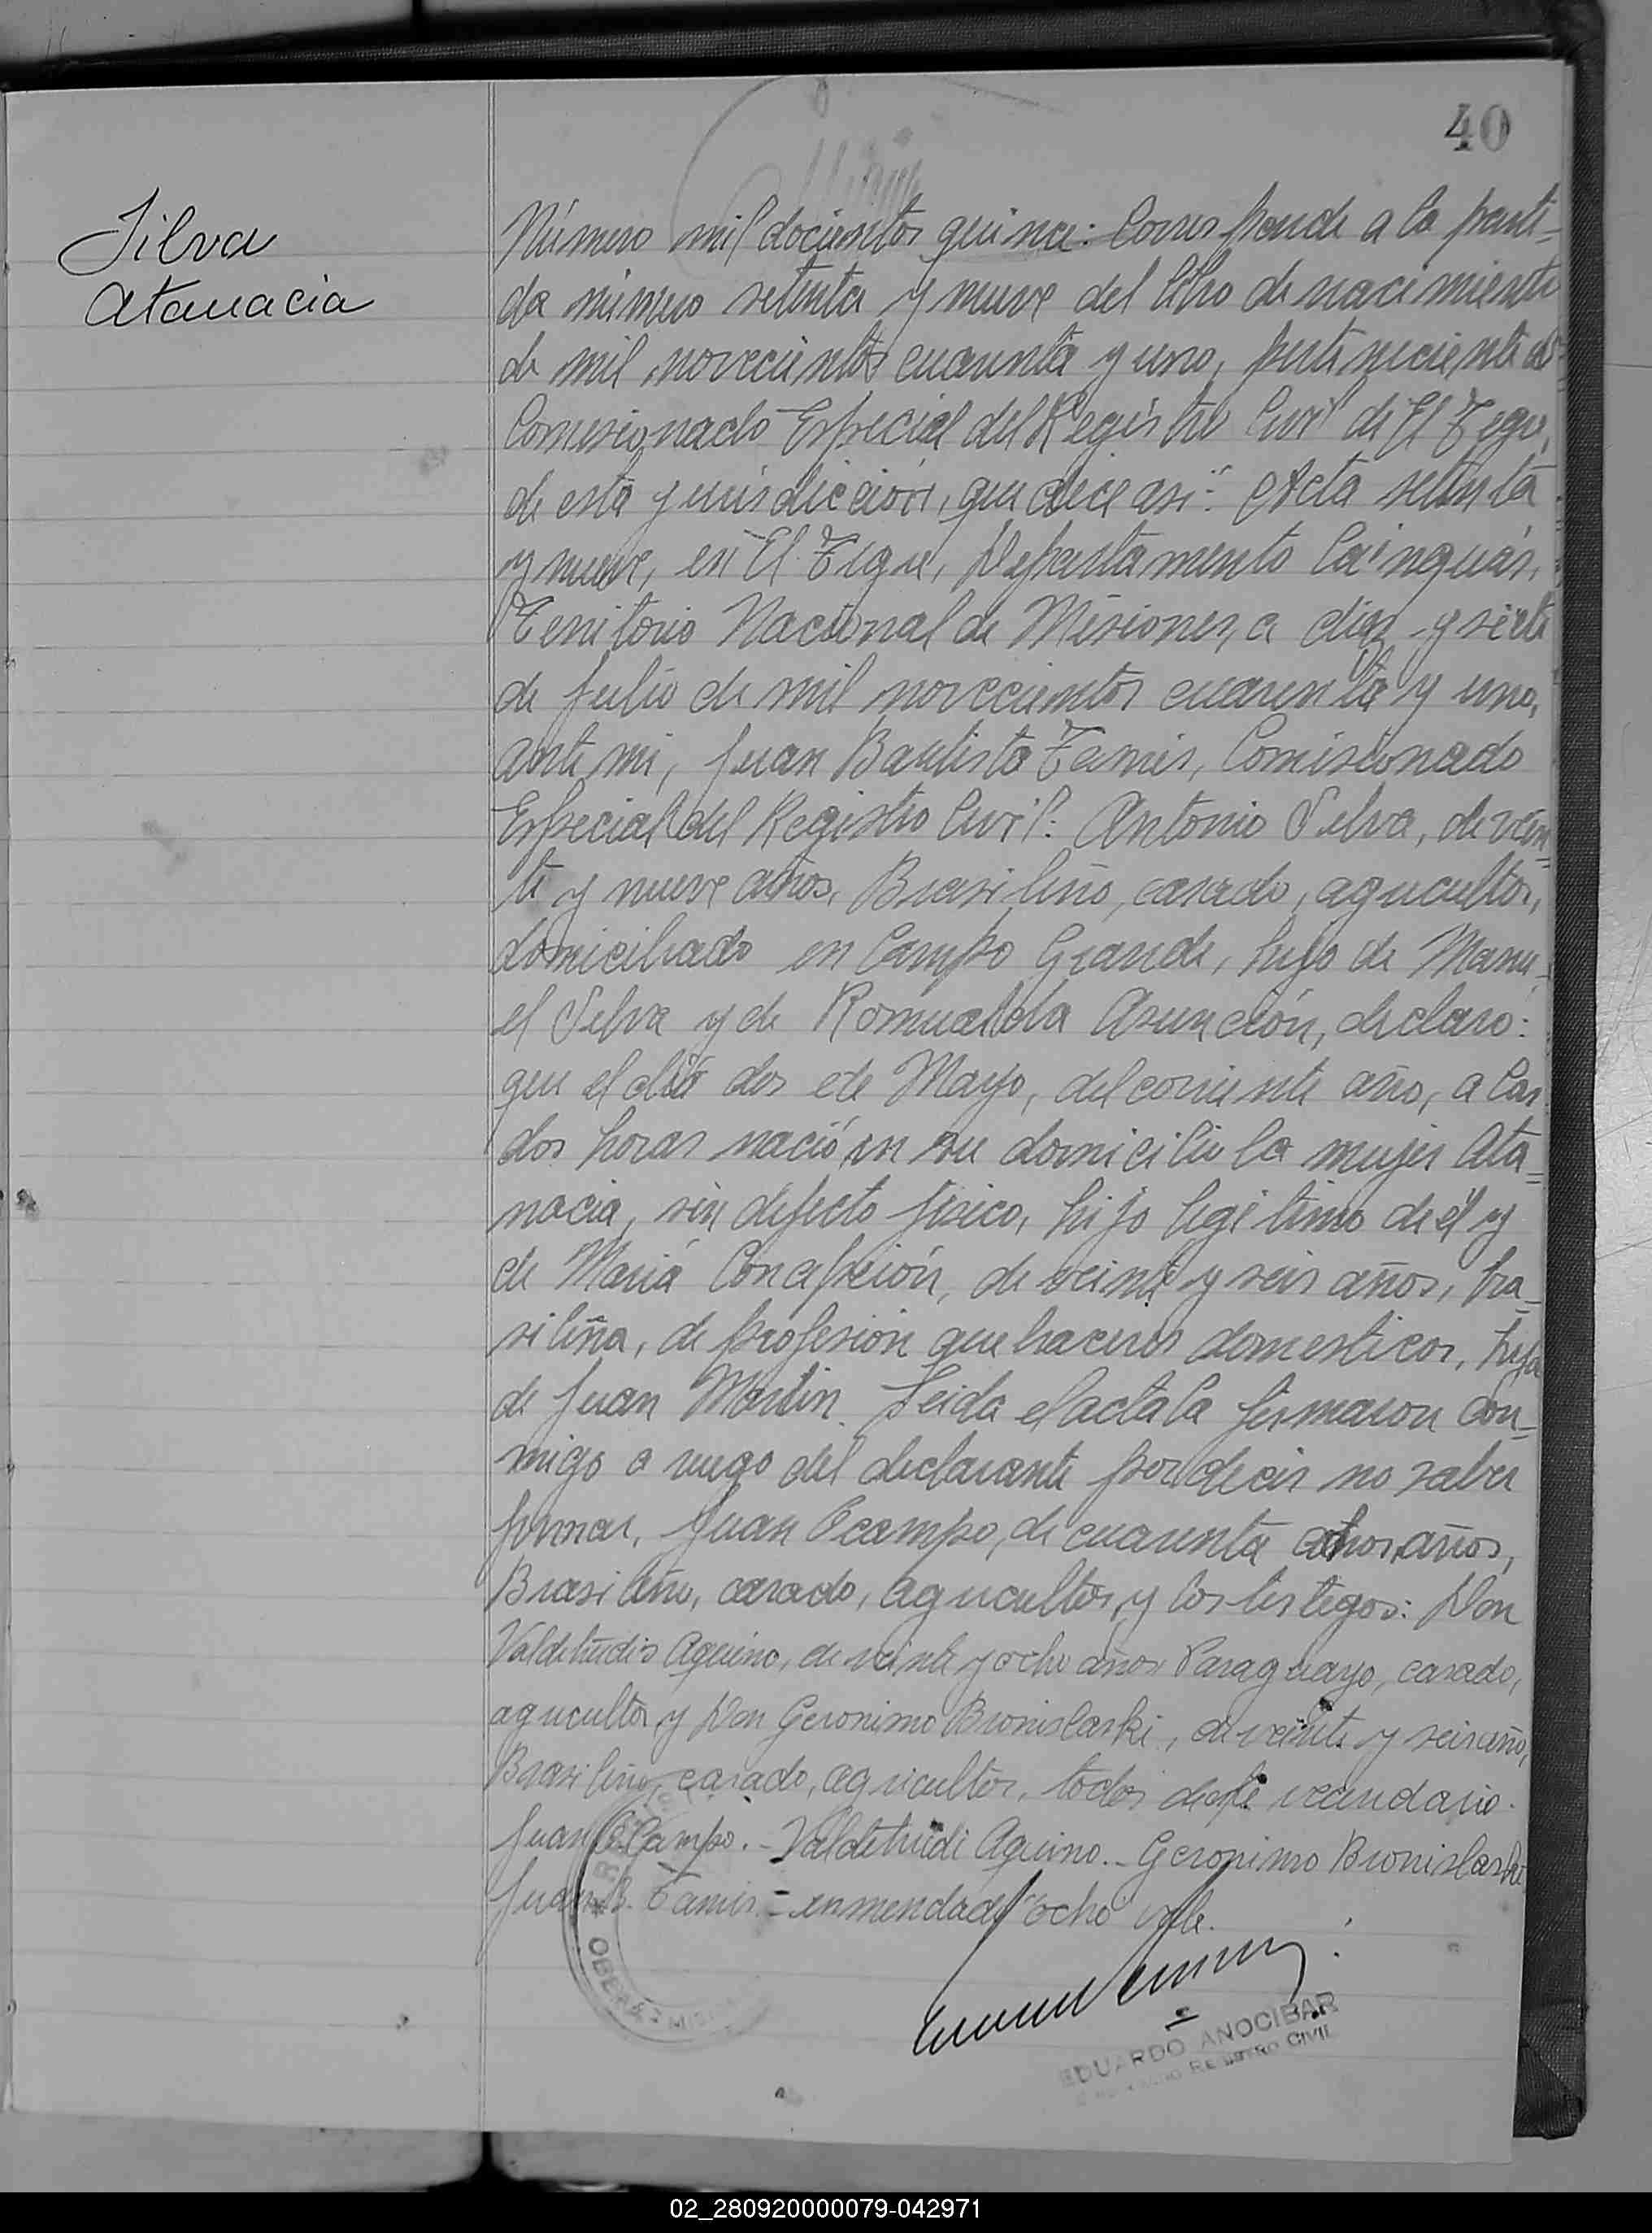 40
Silva
Atanacia
Número mil docientos quince: Corresponde a la parti-
da número setenta y nueve del libro de nacimiento
de mil novecientos cuarenta y uno, perteneciente al
Comisionado Especial del Registro Civil de El Tigre,
de esta jurisdicción, que dice asi:" Acta setenta
y nueve, en El Tigre, Departamento Cainguás,
Territorio Nacional de Misiones, a diez y siete
de Julio de mil novecientos cuarenta y uno,
ante mi, Juan Bautista Tamis, Comisionado
Especial del Registro Civil: Antonio Silva, de vein=
te y nueve años, Brasileño, casado, agricultor,
domiciliado en Campo Grande, hijo de Manu-
el Silva y de Romualda Asunción, declaró:
que el día dos de Mayo, del corriente año, a las
dos horas nació en su domicilio la mujer Ata=
nacia, sin defecto fisico, hijo legitimo de él y
de María Concepción, de veinte y seis años, bra-
sileña, de profesion quehaceres domesticos, hija
de Juan Martin. Leida el acta la firmaron con-
migo a ruego del declarante por decir no saber
firmar, Juan Ocampo, de cuarenta ocho años,
Brasileño, casado, agricultor, y los testigos: Don
Valdetrudis Aquino, de veinte y ocho años Paraguayo, casado,
agricultor y Don Geronimo Bronislaski, de veinte y seis años,
Brasileño, casado, agricultor, todos deste vecindario.
Juan O. Campo.- Valdetrudi Aquino.- Geronimo Bronislaski
Juan B. Tamis.- enmendado "ocho" vale.
OBERÁ - MIS
EDUARDO ANOCIBAR
REGISTRO CIVIL
02_280920000079-042971